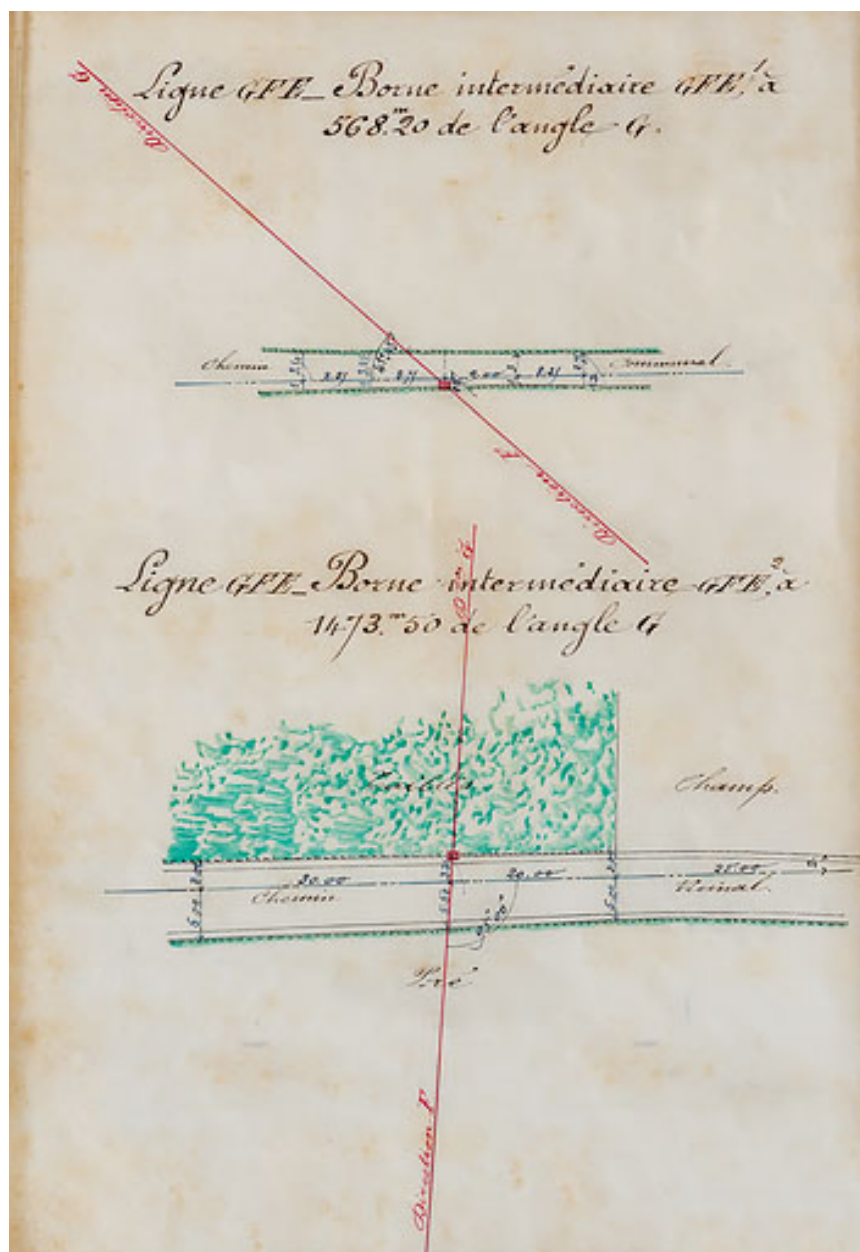 Ligne GFE_ Borne intermédiaire GFE,¹ à
568.ᵐ20 de l'angle G.
Direction G
Chemin
Communal.
2.00
Direction F
Ligne GFE_ Borne intermédiaire GFE,² à
1473.ᵐ50 de l'angle G
Dᵒⁿ G
Champ.
20.00
20.00
25.00
Chemin
Vicinal.
Pré
Direction F